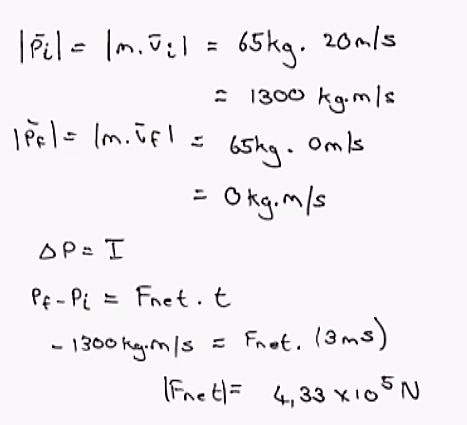 |p̄i| = |m.v̄i| = 65kg. 20m/s
= 1300 kg.m/s
|p̄f| = |m.v̄f| = 65kg. 0m/s
= 0kg.m/s
ΔP = I
Pf-Pi = Fnet.t
-1300kg.m/s = Fnet. (3ms)
|Fnet| = 4,33 x10⁵ N